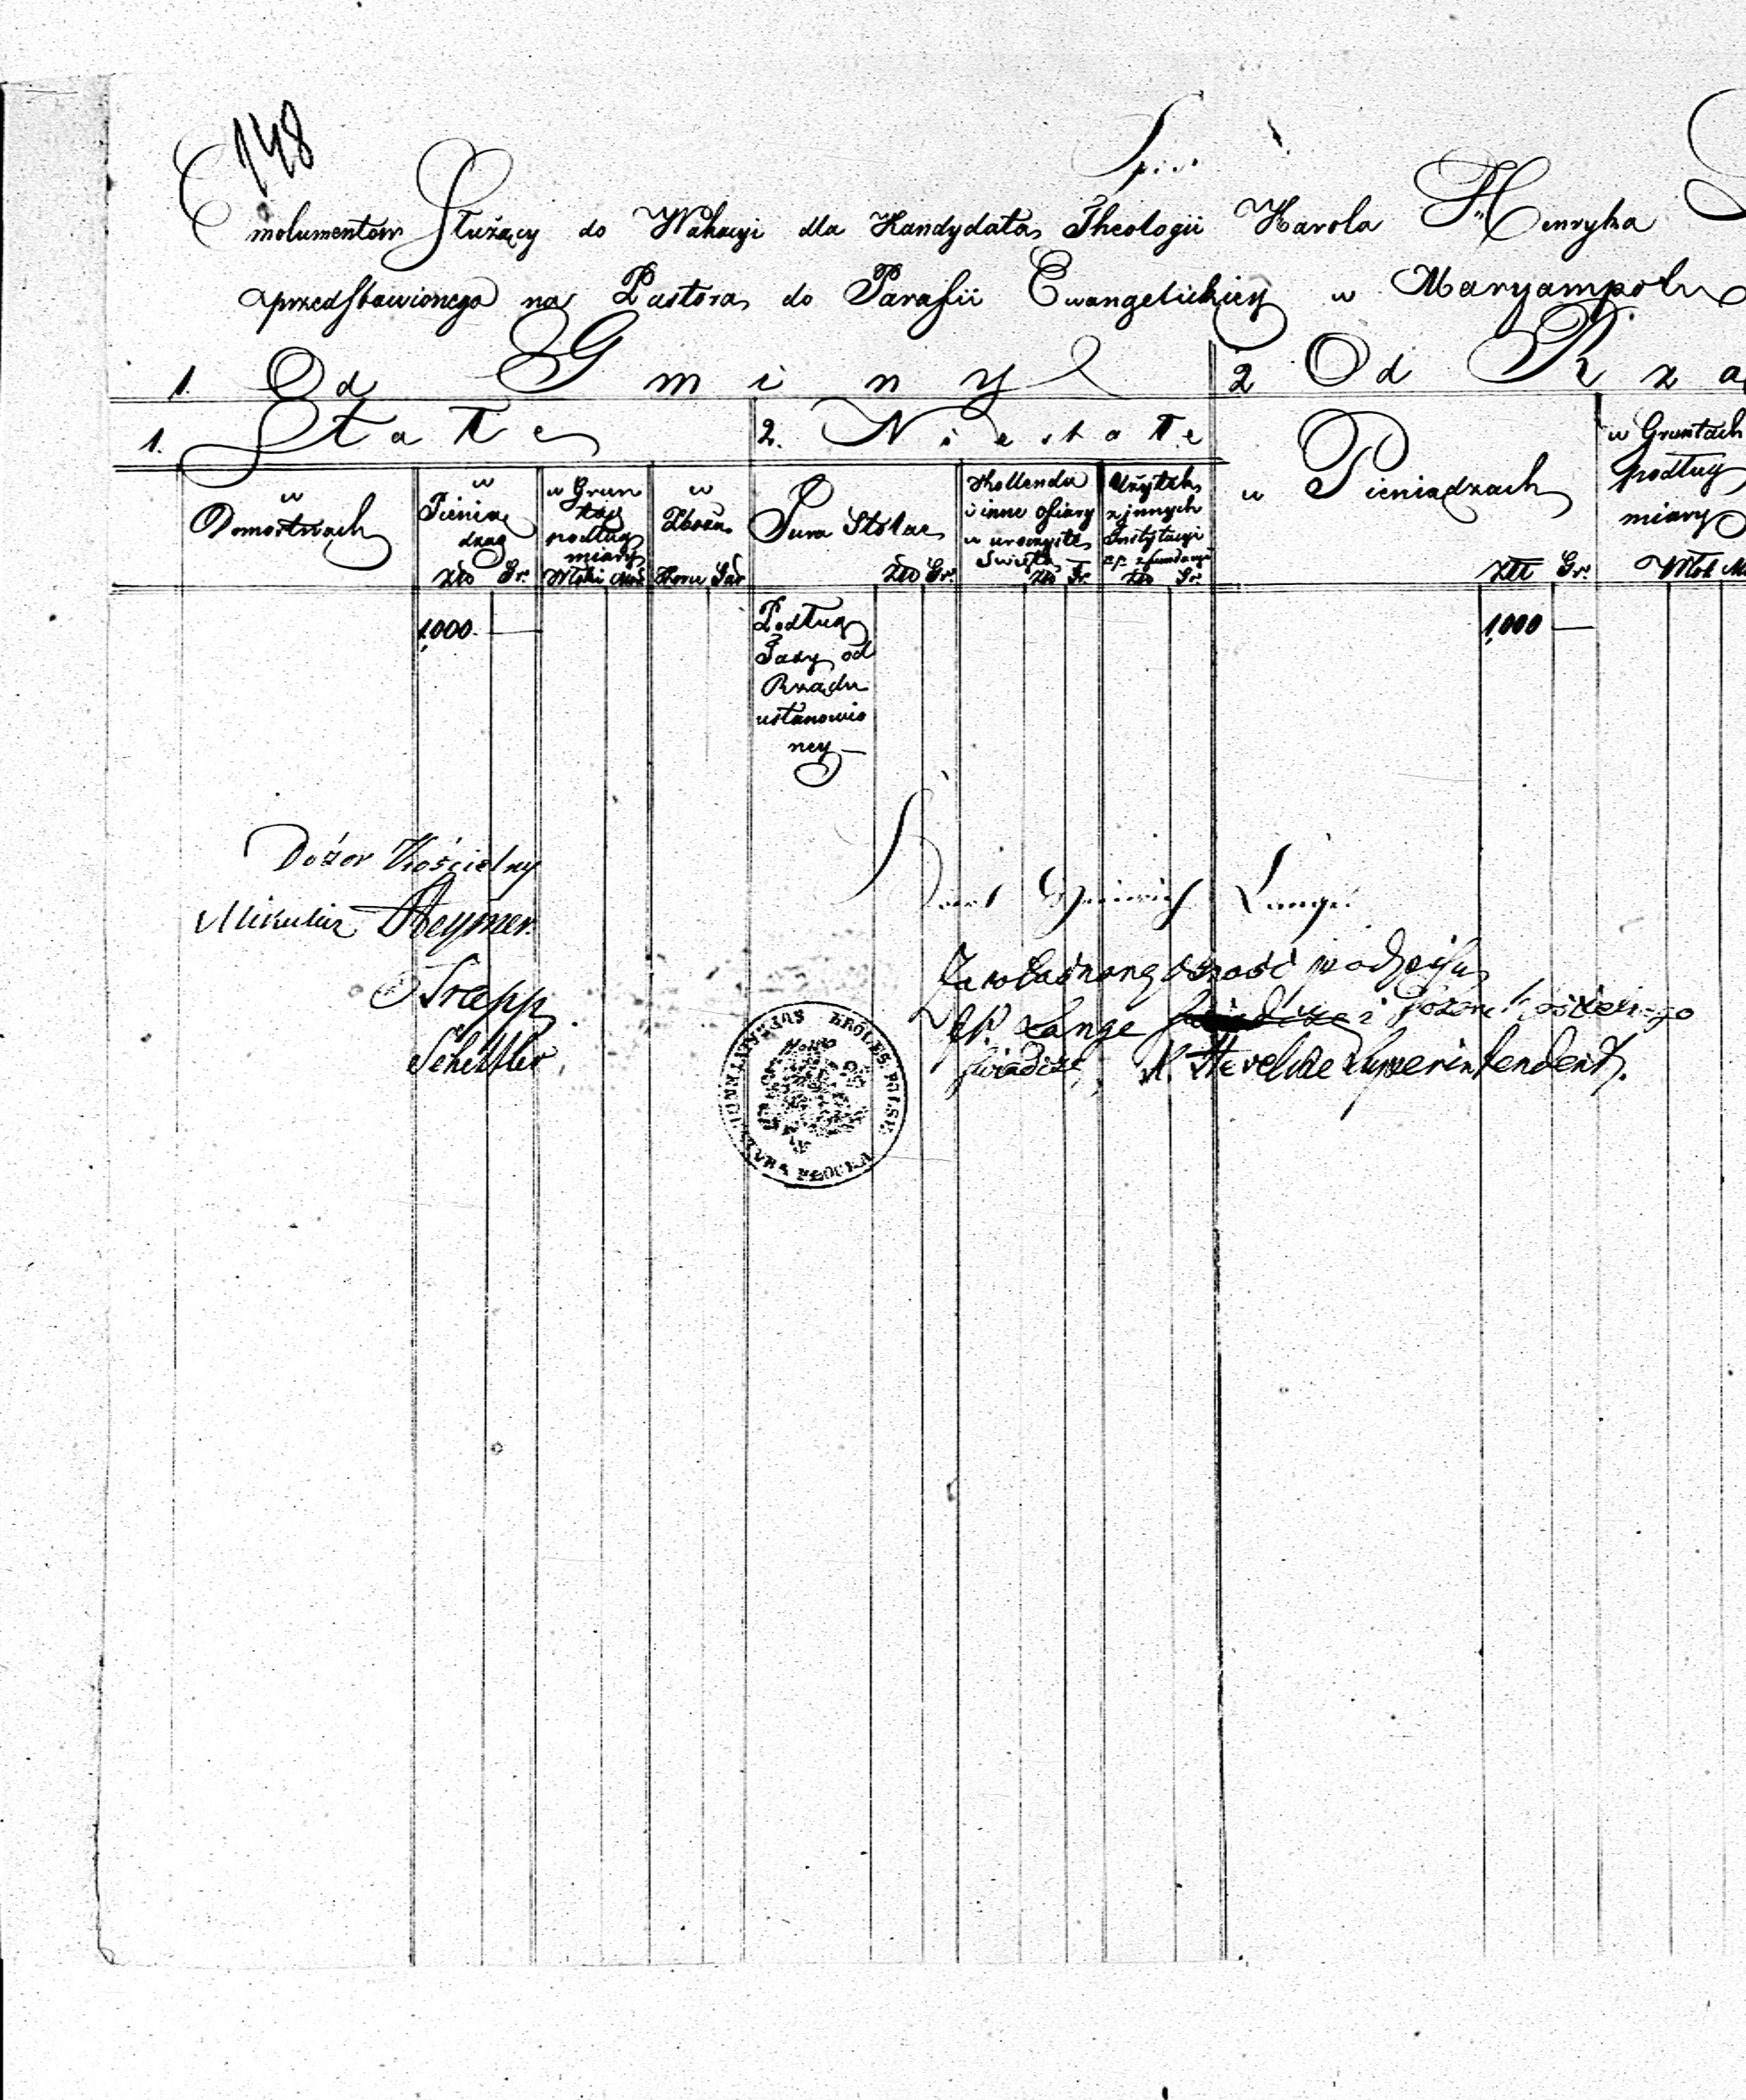 148
Spis
Emolumentow Służący do Wokacyi dla Kandydata Theologii Karola Henryka
przedstawionego na Pastora do Parafii Ewangelickiey w Maryampolu
1. Od Gminy
2 Od Rzą
1. Stałe
2. Niestałe
w Domostwach
w Pienią
dzag
Zło Gr.
w Grun
tag
podług
miary
Włoki Mor
w
Zbożu
Korcu Gar
Jura Stolae
Zło Gr.
Kollenda
i inne ofiary
w uroczyste
Swięta
Zło Gr.
Użytek
z jnnych
Instytucyi
z p. z fundacyi
Zło Gr.
w Pieniądzach
Złł Gr.
w Gruntach
podług
miary
Włok Mo
1,000 —
Podług
Taxy od
Rządu
ustanowio
ney —
1,000 —
Dozór Kościelny
Mikulicz Heymer.
Trapp
Schettler
Karl Heinrich Lange.
Za własnoręczność podpisu
JP. Lange i Dozoru Kościelnego
świadczę, Superintendent.
SUPERINTENDENTURA PŁOCKA KRÓLES. POLSK.